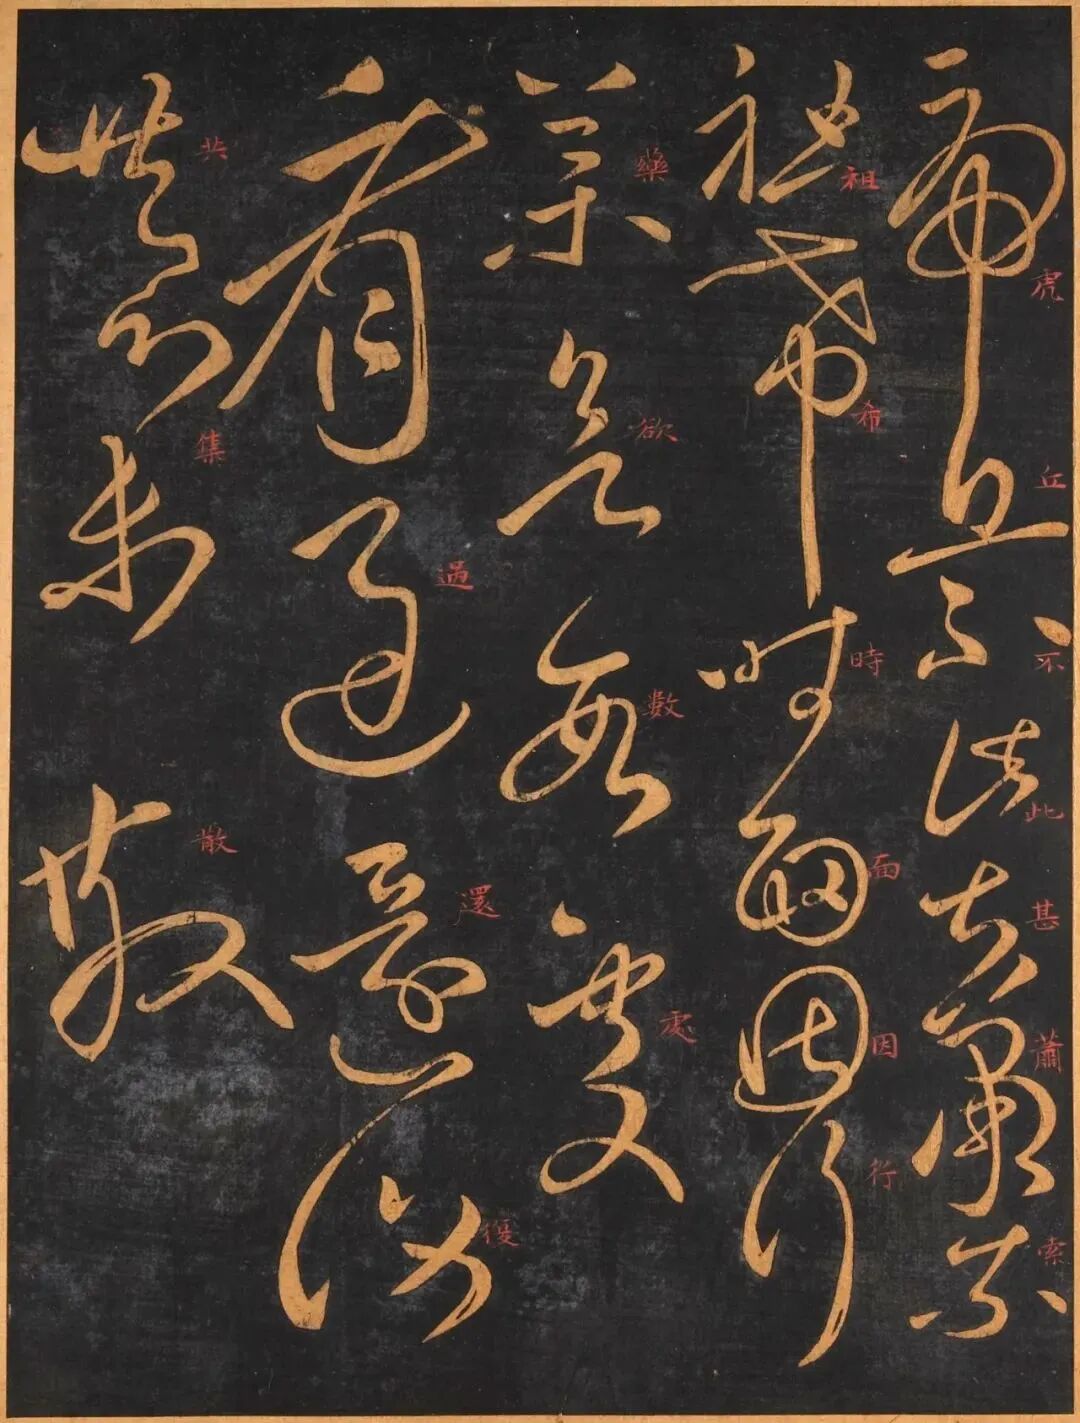 虎丘不此甚蕭索
祖希時面因行
藥欲數處
看過還復
共集散